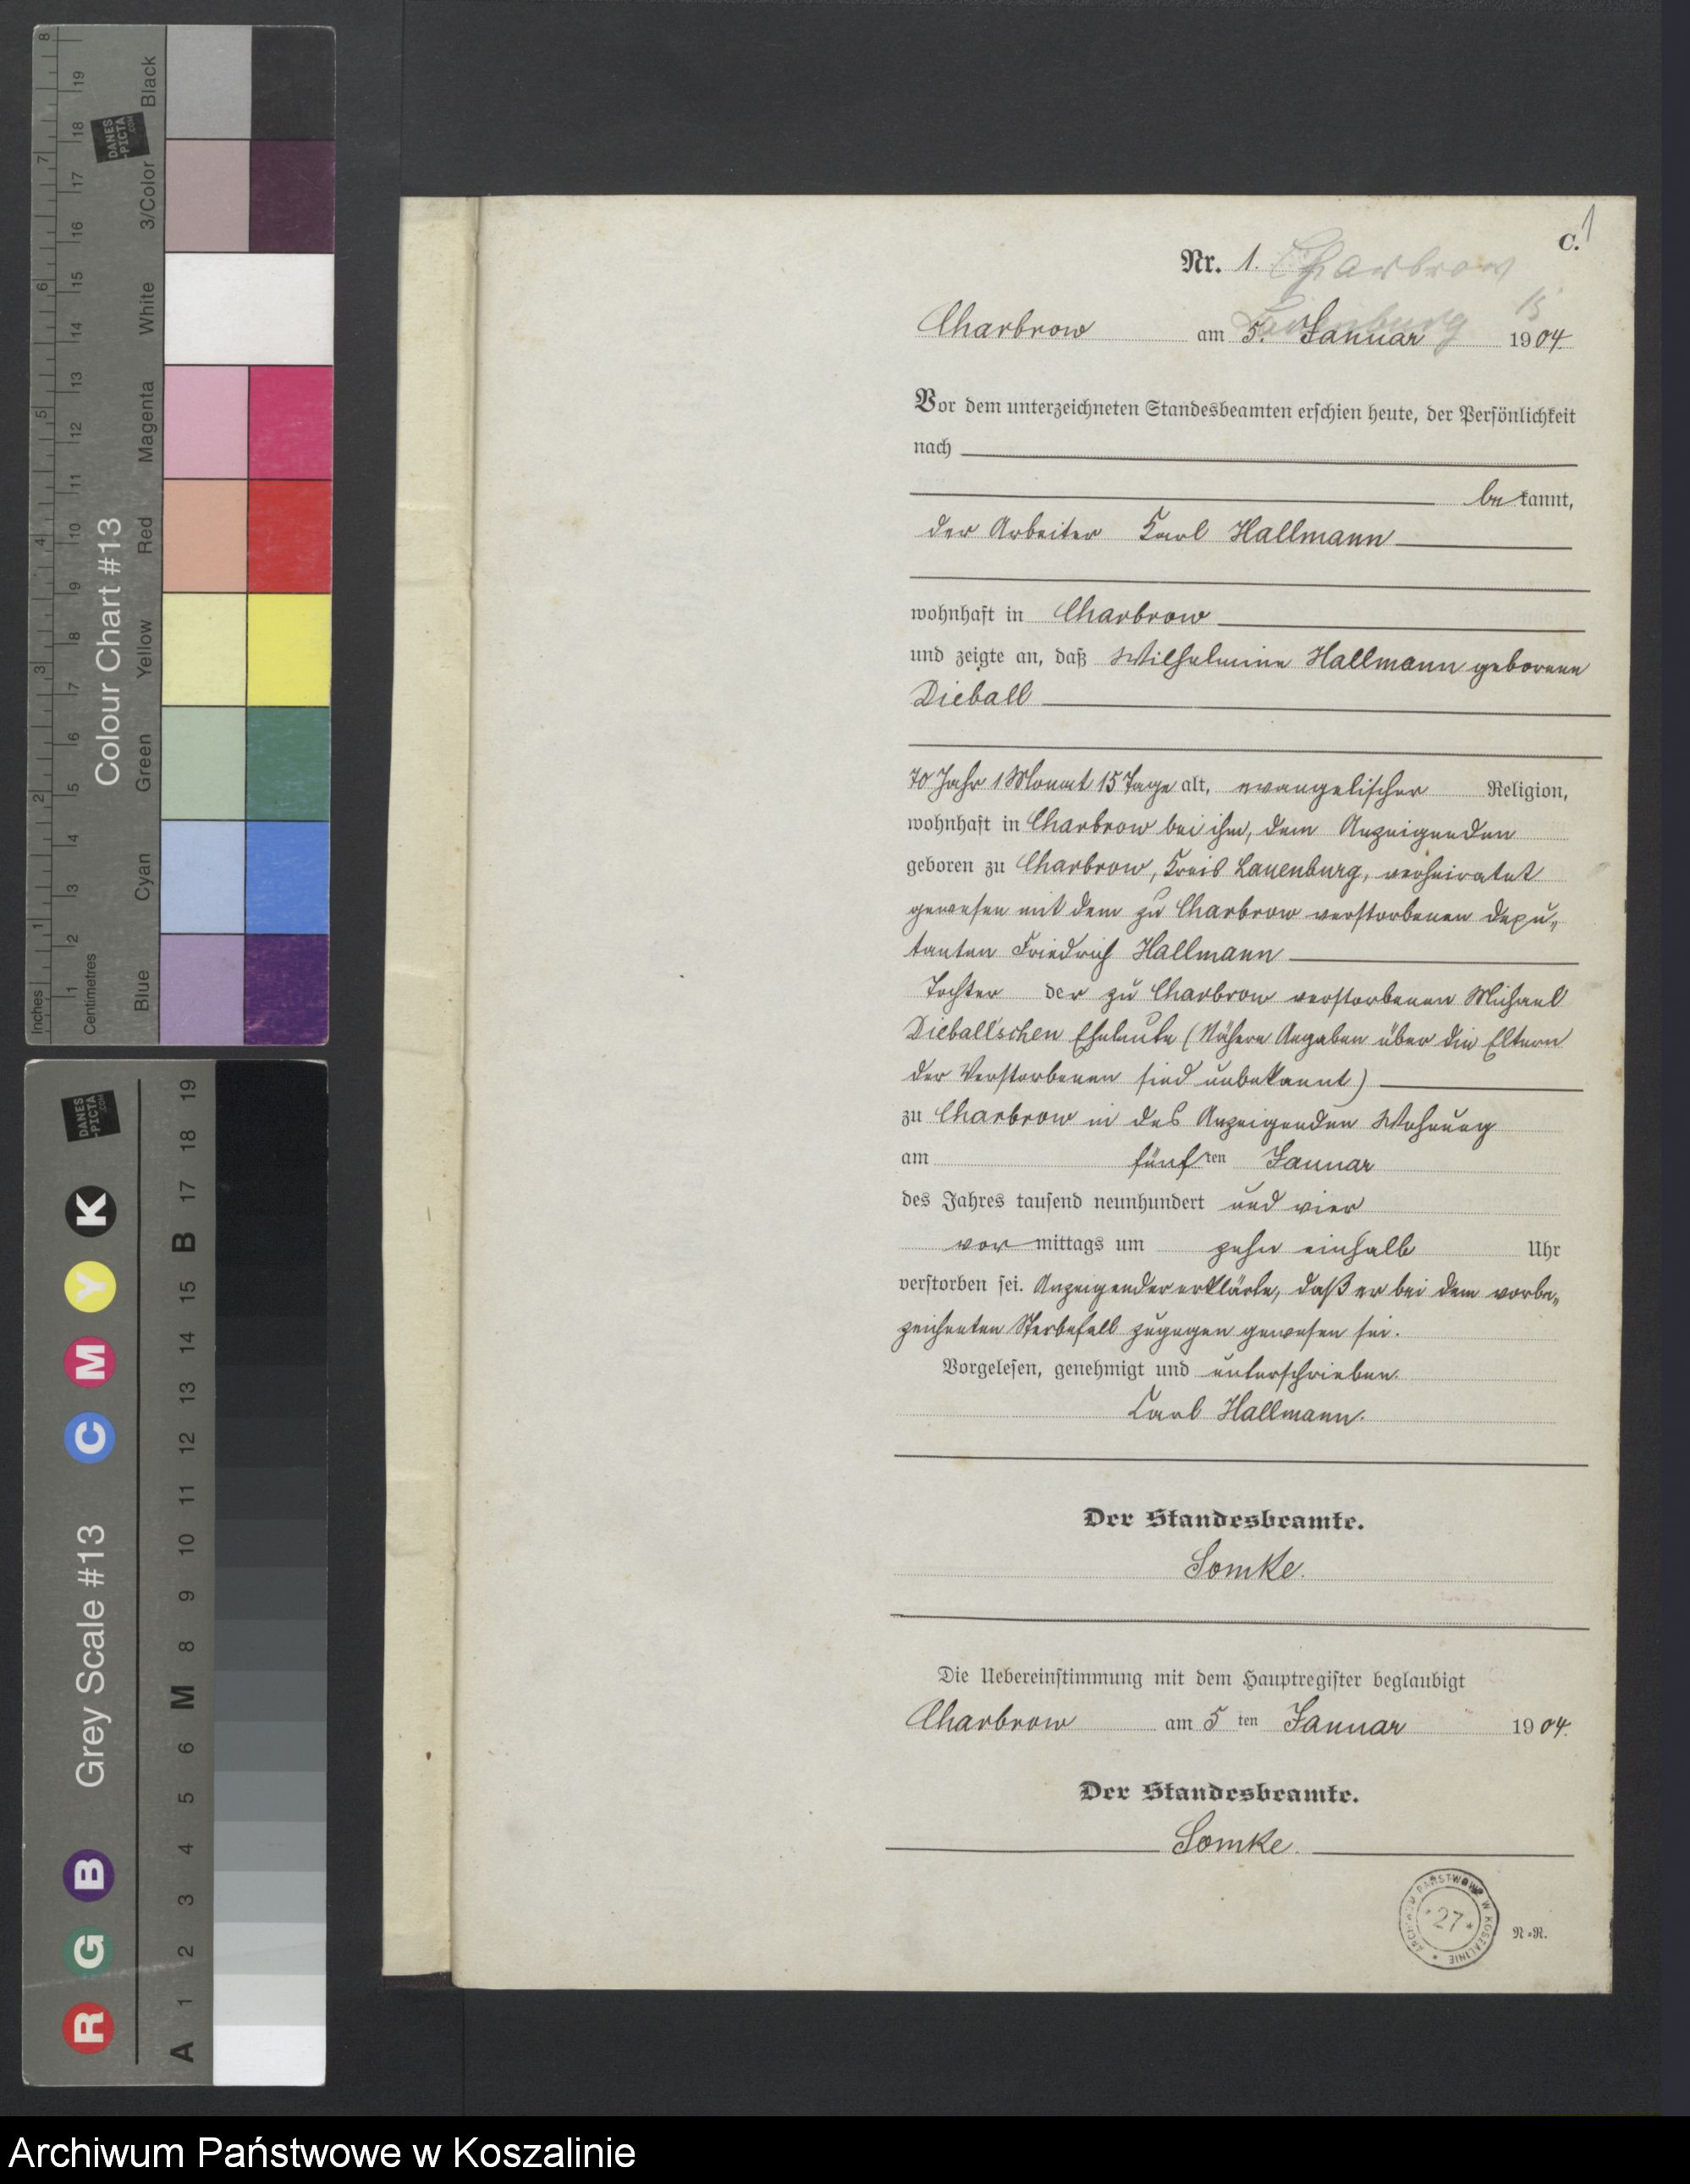 C. 1
Nr. 1. Charbrow
Lauenburg 15
Charbrow am 5. Januar 1904
Vor dem unterzeichneten Standesbeamten erschien heute, der Persönlichkeit
nach
be kannt,
der Arbeiter Karl Hallmann
wohnhaft in Charbrow
und zeigte an, daß Wilhelmine Hallmann geborene
Dieball
70 Jahr 1 Monat 15 Tage alt, evangelischer Religion,
wohnhaft in Charbrow bei ihm, dem Anzeigenden
geboren zu Charbrow, Kreis Lauenburg, verheiratet
gewesen mit dem zu Charbrow verstorbenen Depu„
tanten Friedrich Hallmann
Tochter der zu Charbrow verstorbenen Michael
Dieball'schen Eheleute (Nähere Angaben über die Eltern
der Verstorbenen sind unbekannt)
zu Charbrow in des Anzeigenden Wohnung
am fünf ten Januar
des Jahres tausend neunhundert und vier
vor mittags um zehn einhalb Uhr
verstorben sei. Anzeigender erklärte, daß er bei dem vorbe„
zeichneten Sterbefall zugegen gewesen sei.
Vorgelesen, genehmigt und unterschrieben.
Karl Hallmann.
Der Standesbeamte.
Somke.
Die Uebereinstimmung mit dem Hauptregister beglaubigt
Charbrow am 5 ten Januar 1904.
Der Standesbeamte.
Somke.
ARCHIWUM PAŃSTWOWE W KOSZALINIE
*27*
N.=N.
Colour Chart #13
Inches 1 2 3 4 5 6 7 8
Centimetres 1 2 3 4 5 6 7 8 9 10 11 12 13 14 15 16 17 18 19
Blue Cyan Green Yellow Red Magenta White 3/Color Black
DANES
-PICTA
.COM
Grey Scale #13
R G B C M Y K
A 1 2 3 4 5 6 M 8 9 10 11 12 13 14 15 B 17 18 19
DANES
-PICTA
.COM
Archiwum Państwowe w Koszalinie